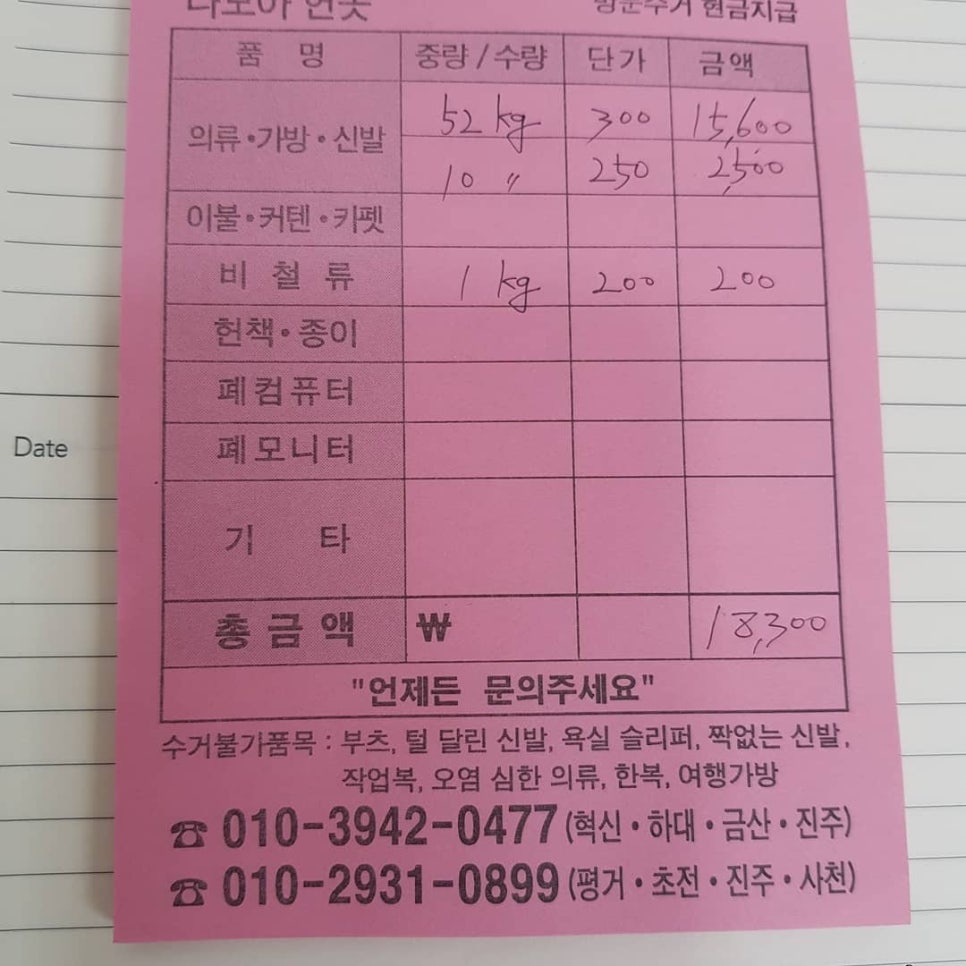 다모아 헌옷
방문수거 현금지급
품 명 중량/수량 단가 금액
의류·가방·신발 52 kg 300 15,600
10 〃 250 2,500
이불·커텐·카펫
비 철 류 1 kg 200 200
헌책·종이
폐컴퓨터
폐모니터
기 타
총금액 ₩ 18,300
"언제든 문의주세요"
수거불가품목 : 부츠, 털 달린 신발, 욕실 슬리퍼, 짝없는 신발,
작업복, 오염 심한 의류, 한복, 여행가방
☎ 010-3942-0477 (혁신·하대·금산·진주)
☎ 010-2931-0899 (평거·초전·진주·사천)
Date